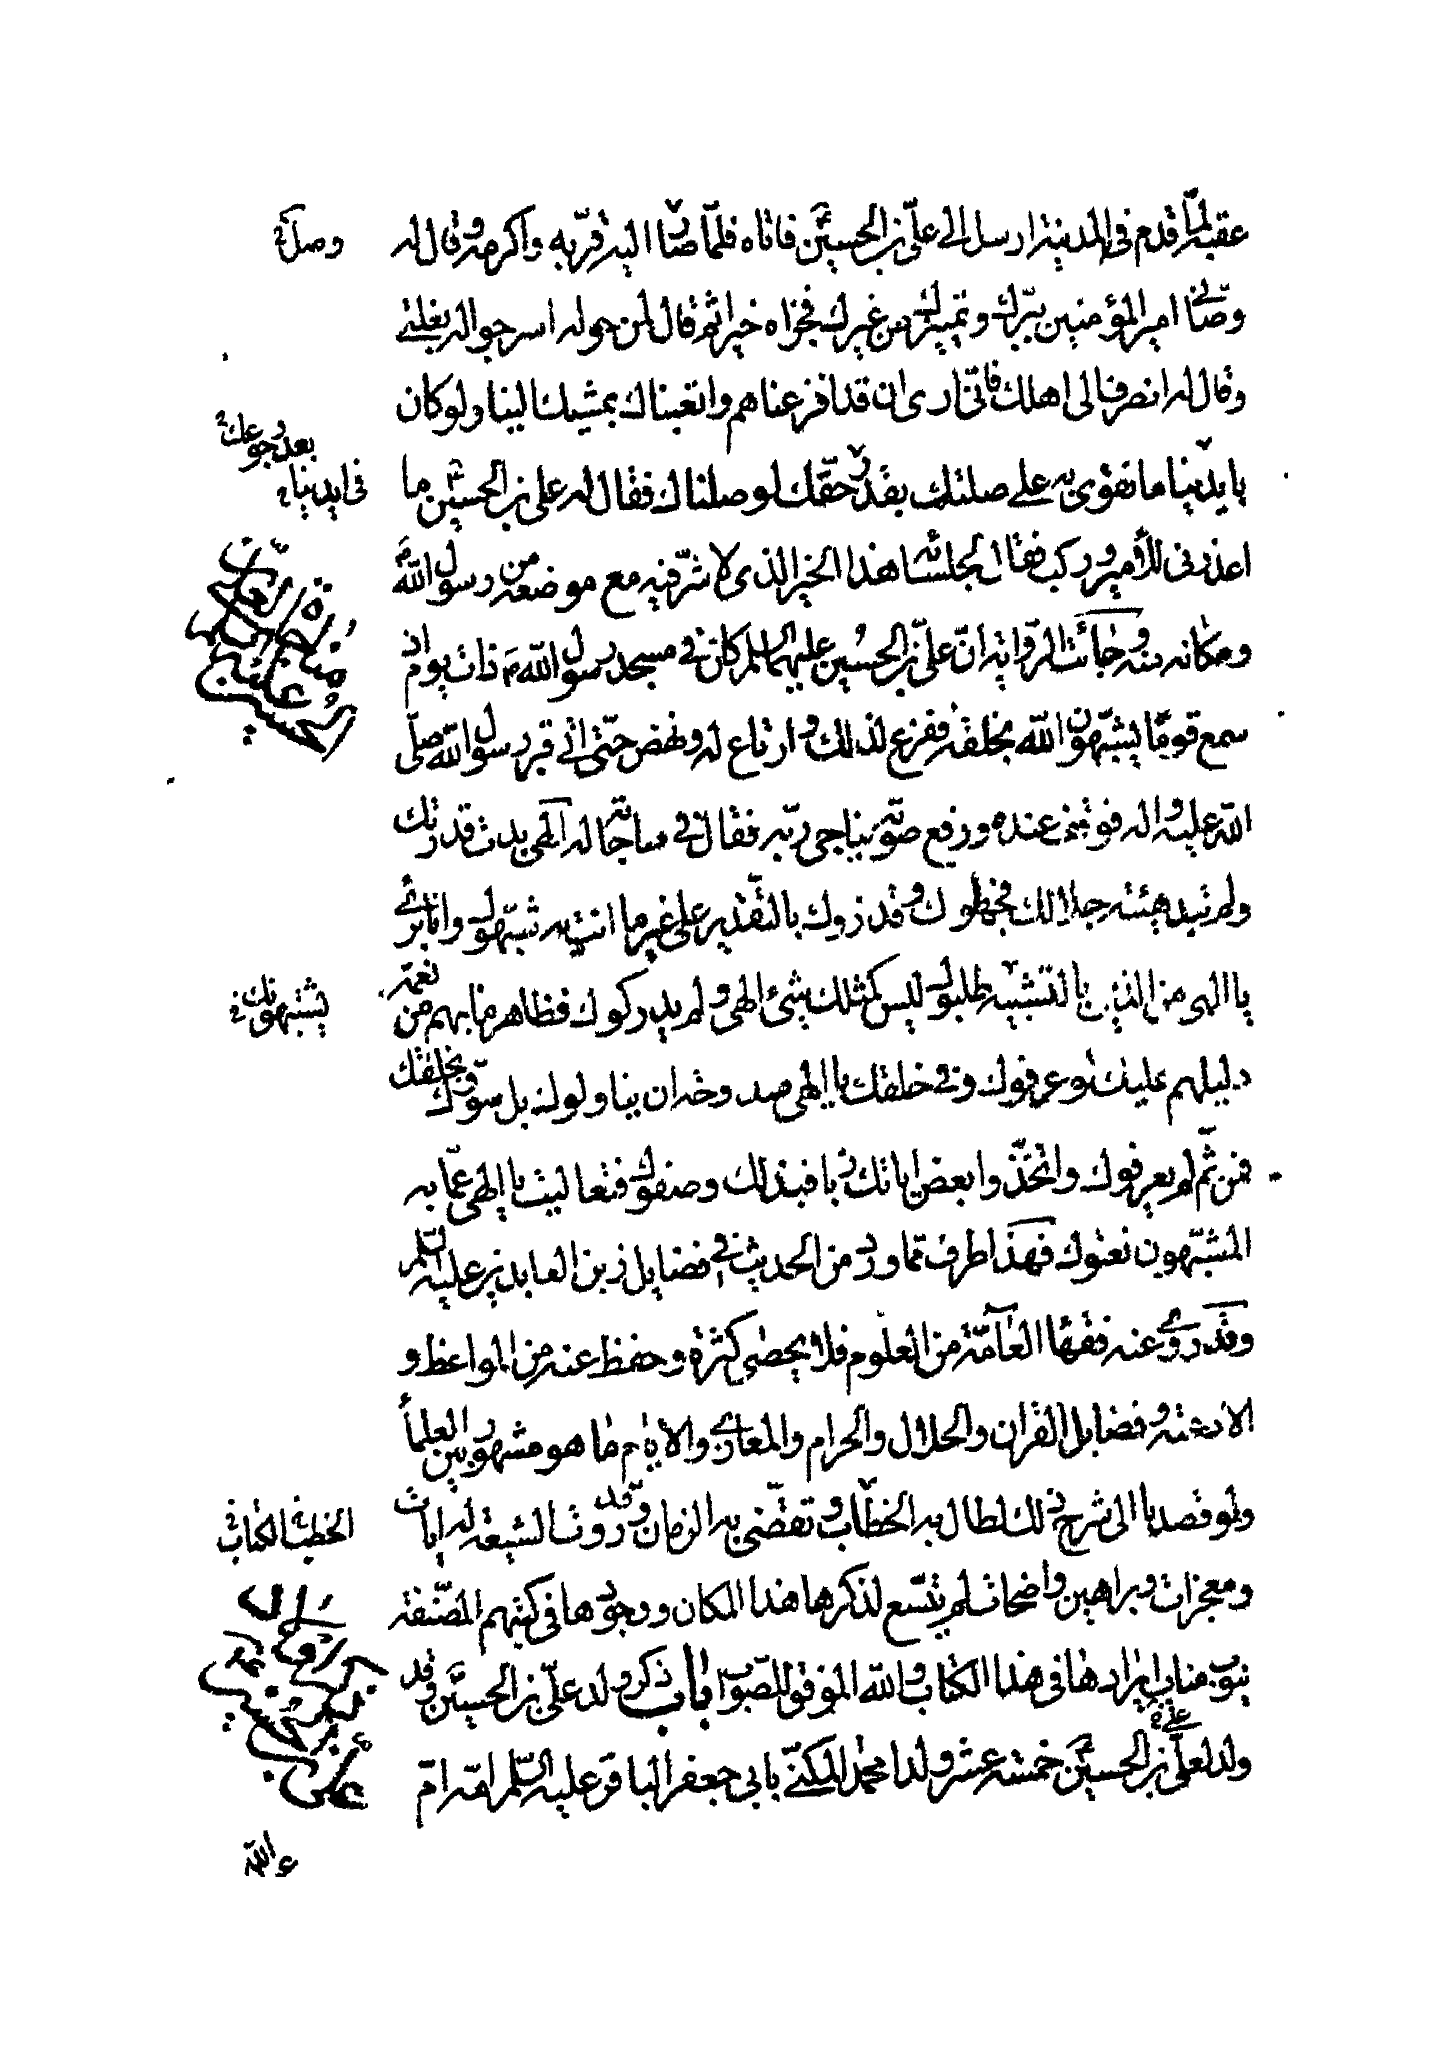 عقبة لمّا قدم في المدينة ارسل الى علىّ بن الحسين فاتاه فلمّا صار اليه قرّبه واكرمه وقال له
وصّانى امير المؤمنين ببرّك وتمييزك من غيرك فجزاه خيرا ثم قال لمن حوله اسرجوا له بغلتى
وقال له انصرف الى اهلك فانّى ارى ان قد افزعناهم واتعبناك بمشيك الينا ولو كان
بايدينا ما نقوى به على صلتك بقدر حقّك لوصلناك فقال له على بن الحسين ما
اعذرنى للأمير وركب فقال لجلسائه هذا الخير الذى لا شرّ فيه مع موضعه من رسول الله
ومكانه منه وجائت الرواية انّ علىّ بن الحسين عليهما السلم كان فى مسجد رسول الله ذات يوم اذ
سمع قومًا يشبّهون الله بخلقه ففزع لذلك وارتاع له ونهض حتّى اتى قبر رسول الله صلّى
الله عليه واله فوقف عنده ورفع صوته يناجى ربّه فقال فى مناجاته له الهى بدت قدرتك
ولم تبد هيئته جلالك فجهلوك وقد زوك بالتقدير على غير ما انت به شبّهوك وانا برئ
يا الهى من الذين بالتشبيه طلبوك ليس كمثلك شئ الهى ولم يدركوك فظاهر ما بهم من نعمة
دليلهم عليك لو عرفوك وفى خلقك يا الهى مندوحة ان يناولوك بل سوّوك بخلقك
فمن ثمّ لم يعرفوك واتخذوا بعض اياتك ربا فبذلك وصفوك فتعاليت يا الهى عمّا به
المشبّهون نعتوك فهذا طرف ممّا ورد من الحديث فى فضايل زين العابدين عليه السلم
وقد روى عنه فقهاء العامّة من العلوم فلا يحصى كثرة وحفظ عنه من المواعظ و
الادعية وفضايل القران والحلال والحرام والمغازى والايّام ما هو مشهور بين العلماء
ولو قصدنا الى شرح ذلك لطال به الخطاب وتقضّى به الزمان وقد روت الشيعة له ايات
ومعجزات وبراهين واضحات لم يتّسع لذكرها هذا المكان ووجودها فى كتبهم المصنّفة
ينوب مناب ايرادها فى هذا الكتاب والله الموفق للصّواب باب ذكر ولد علىّ بن الحسين وقد
ولد لعلىّ بن الحسين خمسة عشر ولدا محمد المكنّى بابى جعفر الباقر عليه السلم امّه امّ
وصل
بعد رجوعك
فى ايدينا
يشبّهونك
الخطب الكتاب
عبد الله